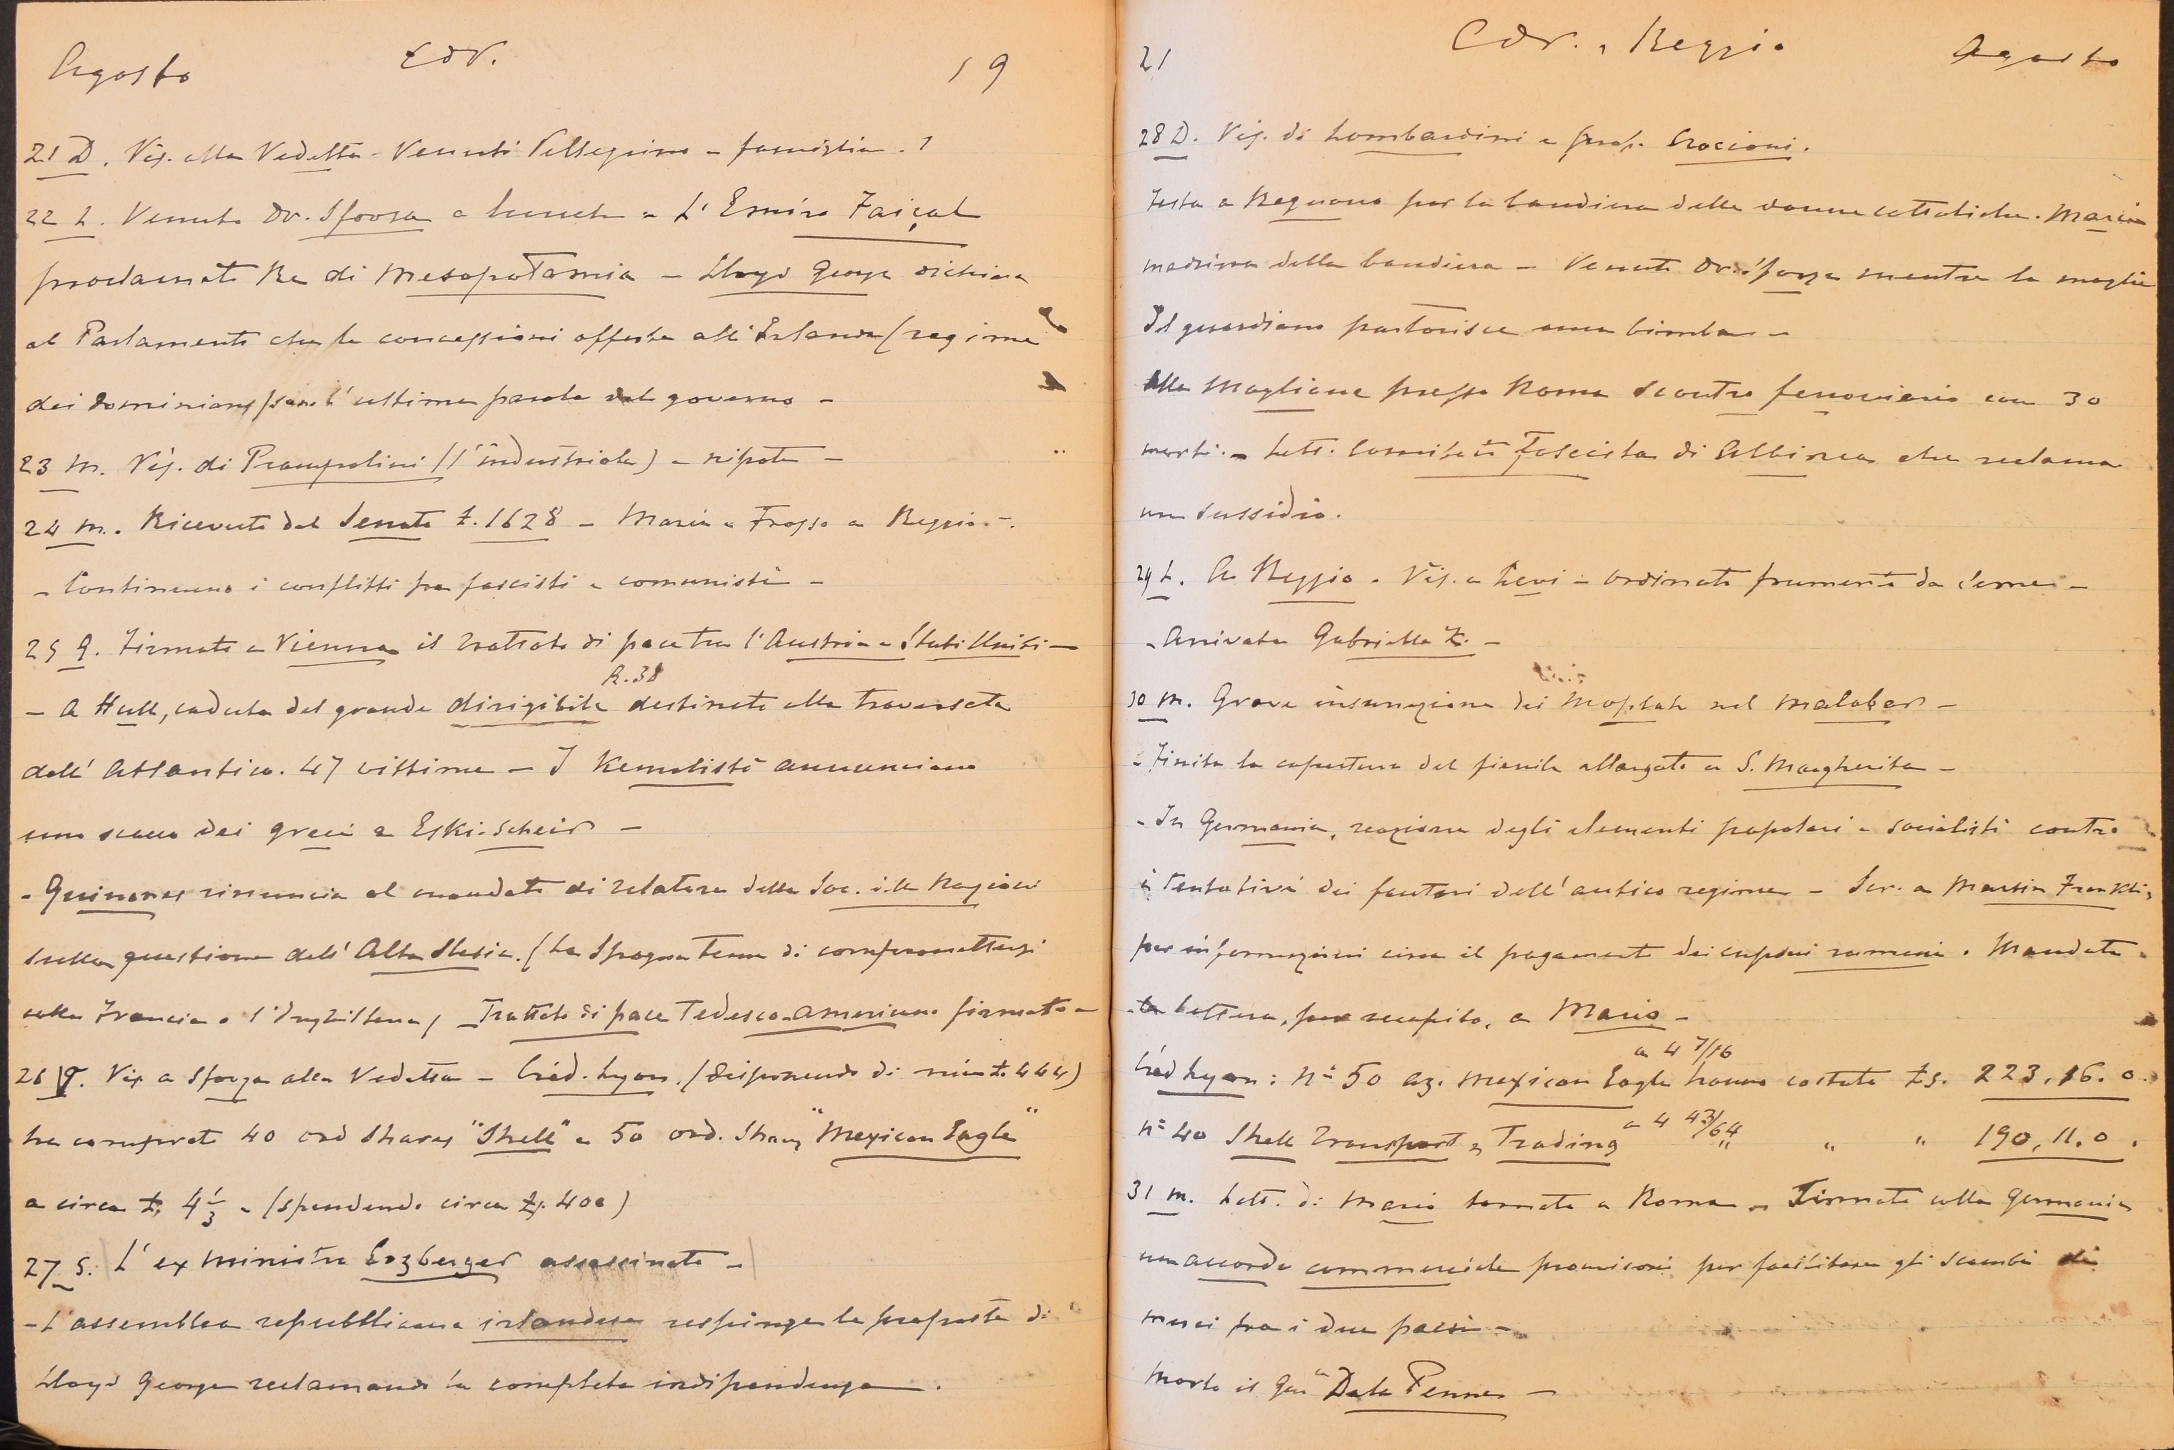 Agosto Cdr. 19
21 D. Vis. alla Vedetta - Venuti Pellegrino e famiglia.
22 L. Venuto Dr. Sforza a lunch - L'Emiro Faiçal
proclamato Re di Mesopotamia - Lloyd George dichiara
al Parlamento che le concessioni offerte all'Irlanda (regime
dei dominions) sono l'ultima parola del governo -
23 M. Vis. di Prampolini (l'industriale) e nipote -
24 M. Ricevuto dal Senato £. 1628 - Maria e a Reggio -
- Continuano i conflitti fra fascisti e comunisti -
25 G. Firmato a Vienna il trattato di pace tra l'Austria e Stati Uniti -
R.38
- A Hull, caduta del grande dirigibile destinato alla traversata
dell'Atlantico. 47 vittime - I Kemalisti annunciano
uno scacco dei greci a Eski-Scheir -
- Quinones rinuncia al mandato di relatore della Soc. delle Nazioni
sulla questione dell'Alta Slesia. (La Spagna teme di compromettersi
colla Francia o l'Inghilterra) - Trattato di pace Tedesco-americano firmato -
26 V. Vis. a Sforza alla Vedetta - Créd. Lyon. (disponendo di £. 444)
ha comprato 40 ord shares "Shell" e 50 ord. Shares "Mexican Eagle"
a circa £. 4 1/3 - (spendendo circa £s. 400)
27 S. L'ex ministro Erzberger assassinato -
- L'assemblea repubblicana irlandese respinge le proposte di
Lloyd George reclamando la completa indipendenza.
21 Cdr. e Reggio Agosto
28 D. Vis. di Lombardini e prof. Crocioni.
Festa a Regnano per la bandiera delle donne cattoliche. Maria
madrina della bandiera - Venuto Dr. Sforza mentre la moglie
del guardiano partorisce una bimba -
Alla Magliana presso Roma scontro ferroviario con 30
morti. - Lett. Comitato fascista di Albinea che reclama
un sussidio.
29 L. A Reggio. Vis. a Levi - ordinato frumento da seme -
- Arrivata Gabriella Z. -
30 M. Grave insurrezione dei Moplah nel Malabar -
- Finita la copertura del fienile allargato a S. Margherita -
- In Germania, reazione degli elementi popolari e socialisti contro
i tentativi dei fautori dell'antico regime - Scr. a Martin Franklin
per informazioni circa il pagamento dei cuponi rumeni. Mandata
la lettera, per recapito, a Mario -
a 4 7/16
Créd Lyon: n° 50 az. Mexican Eagle hanno costato £s. 223.16.0
n° 40 Shell Transport & Trading a 4 43/64 " " " 190.11.0.
31 M. Lett. di Mario tornato a Roma - Firmato colla Germania
un accordo commerciale provvisorio per facilitare gli scambi di
merci tra i due paesi -
Morto il Gen. Dala Penne -